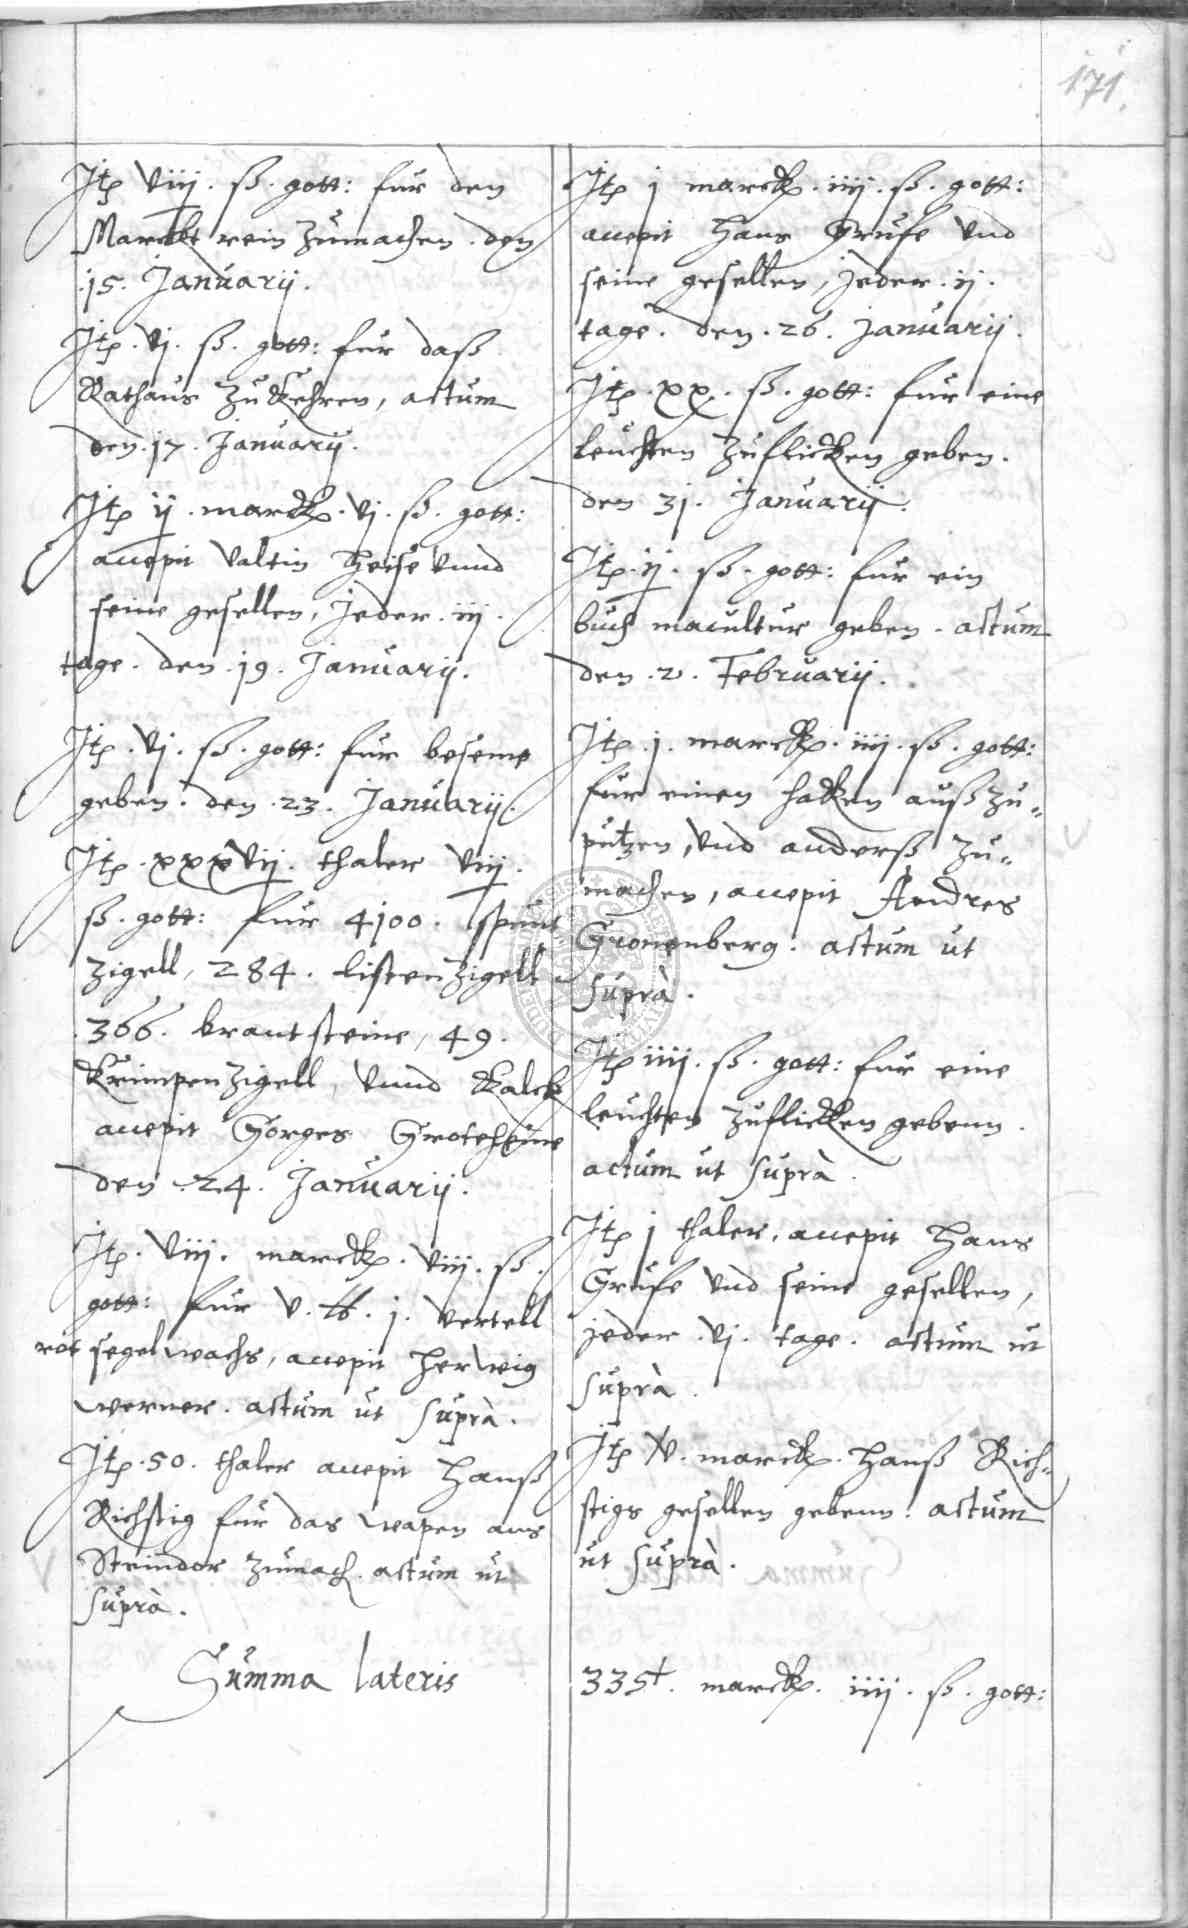 171.
Itē viij. ß. gott: fur den
Marckt rein zumachen. den
.15. Januarij.
Itē. vj. ß. gott: fur daß
Rathaus zu kehren, actum
den .17. Januarij.
Itē ij. marck. vj. ß. gott:
accepit Valtin Heise vnnd
seine gesellen, Jeder. iij.
tage. den .19. Januarij.
Itē. vj. ß. gott: fur beseme
geben. den .23. Januarij.
Itē. xxxvij. thaler viij.
ß. gott: fur 4100. spunt
zigell, 284. listenzigell
.366. brantsteine, 49.
Krimpenzigell, vnnd Kalck
accepit Görges Grotehenne
den .24. Januarij.
Itē. viij. marck. viij. ß.
gott: fur v. lb. j. vertell
rot segelwachs, accepit Herwig
werner. actum ut suprà.
Itē .50. thaler accepit Hanß
Richstig fur das wapen ans
Steindor zumach. actum ut
suprà.
Summa lateris
Itē j marck. iiij. ß. gott:
accepit Hans Grufe vnd
seine gesellen, Jeder. ij.
tage. den .26. Januarij.
Itē. xx. ß. gott: fur eine
leuchten zuflicken geben.
den 31. Januarij.
Itē. ij. ß. gott: fur ein
buch macultur geben. actum
den .2. Februarij.
Itē. j. marck. iiij. ß. gott:
fur einen haken auß zu-
putzen, vnd anderß zu-
machen, accepit Andres
Gronenberg. actum ut
suprà.
Itē iiij. ß. gott: fur eine
leuchten zuflicken gebenn.
actum ut suprà.
Itē j thaler, accepit Hans
Grufe vnd seine gesellen,
jeder vj. tage. actum ut
suprà.
Itē v. marck. Hanß Rich-
stigs gesellen gebenn. actum
ut suprà.
335 ł. marck. iiij. ß. gott: